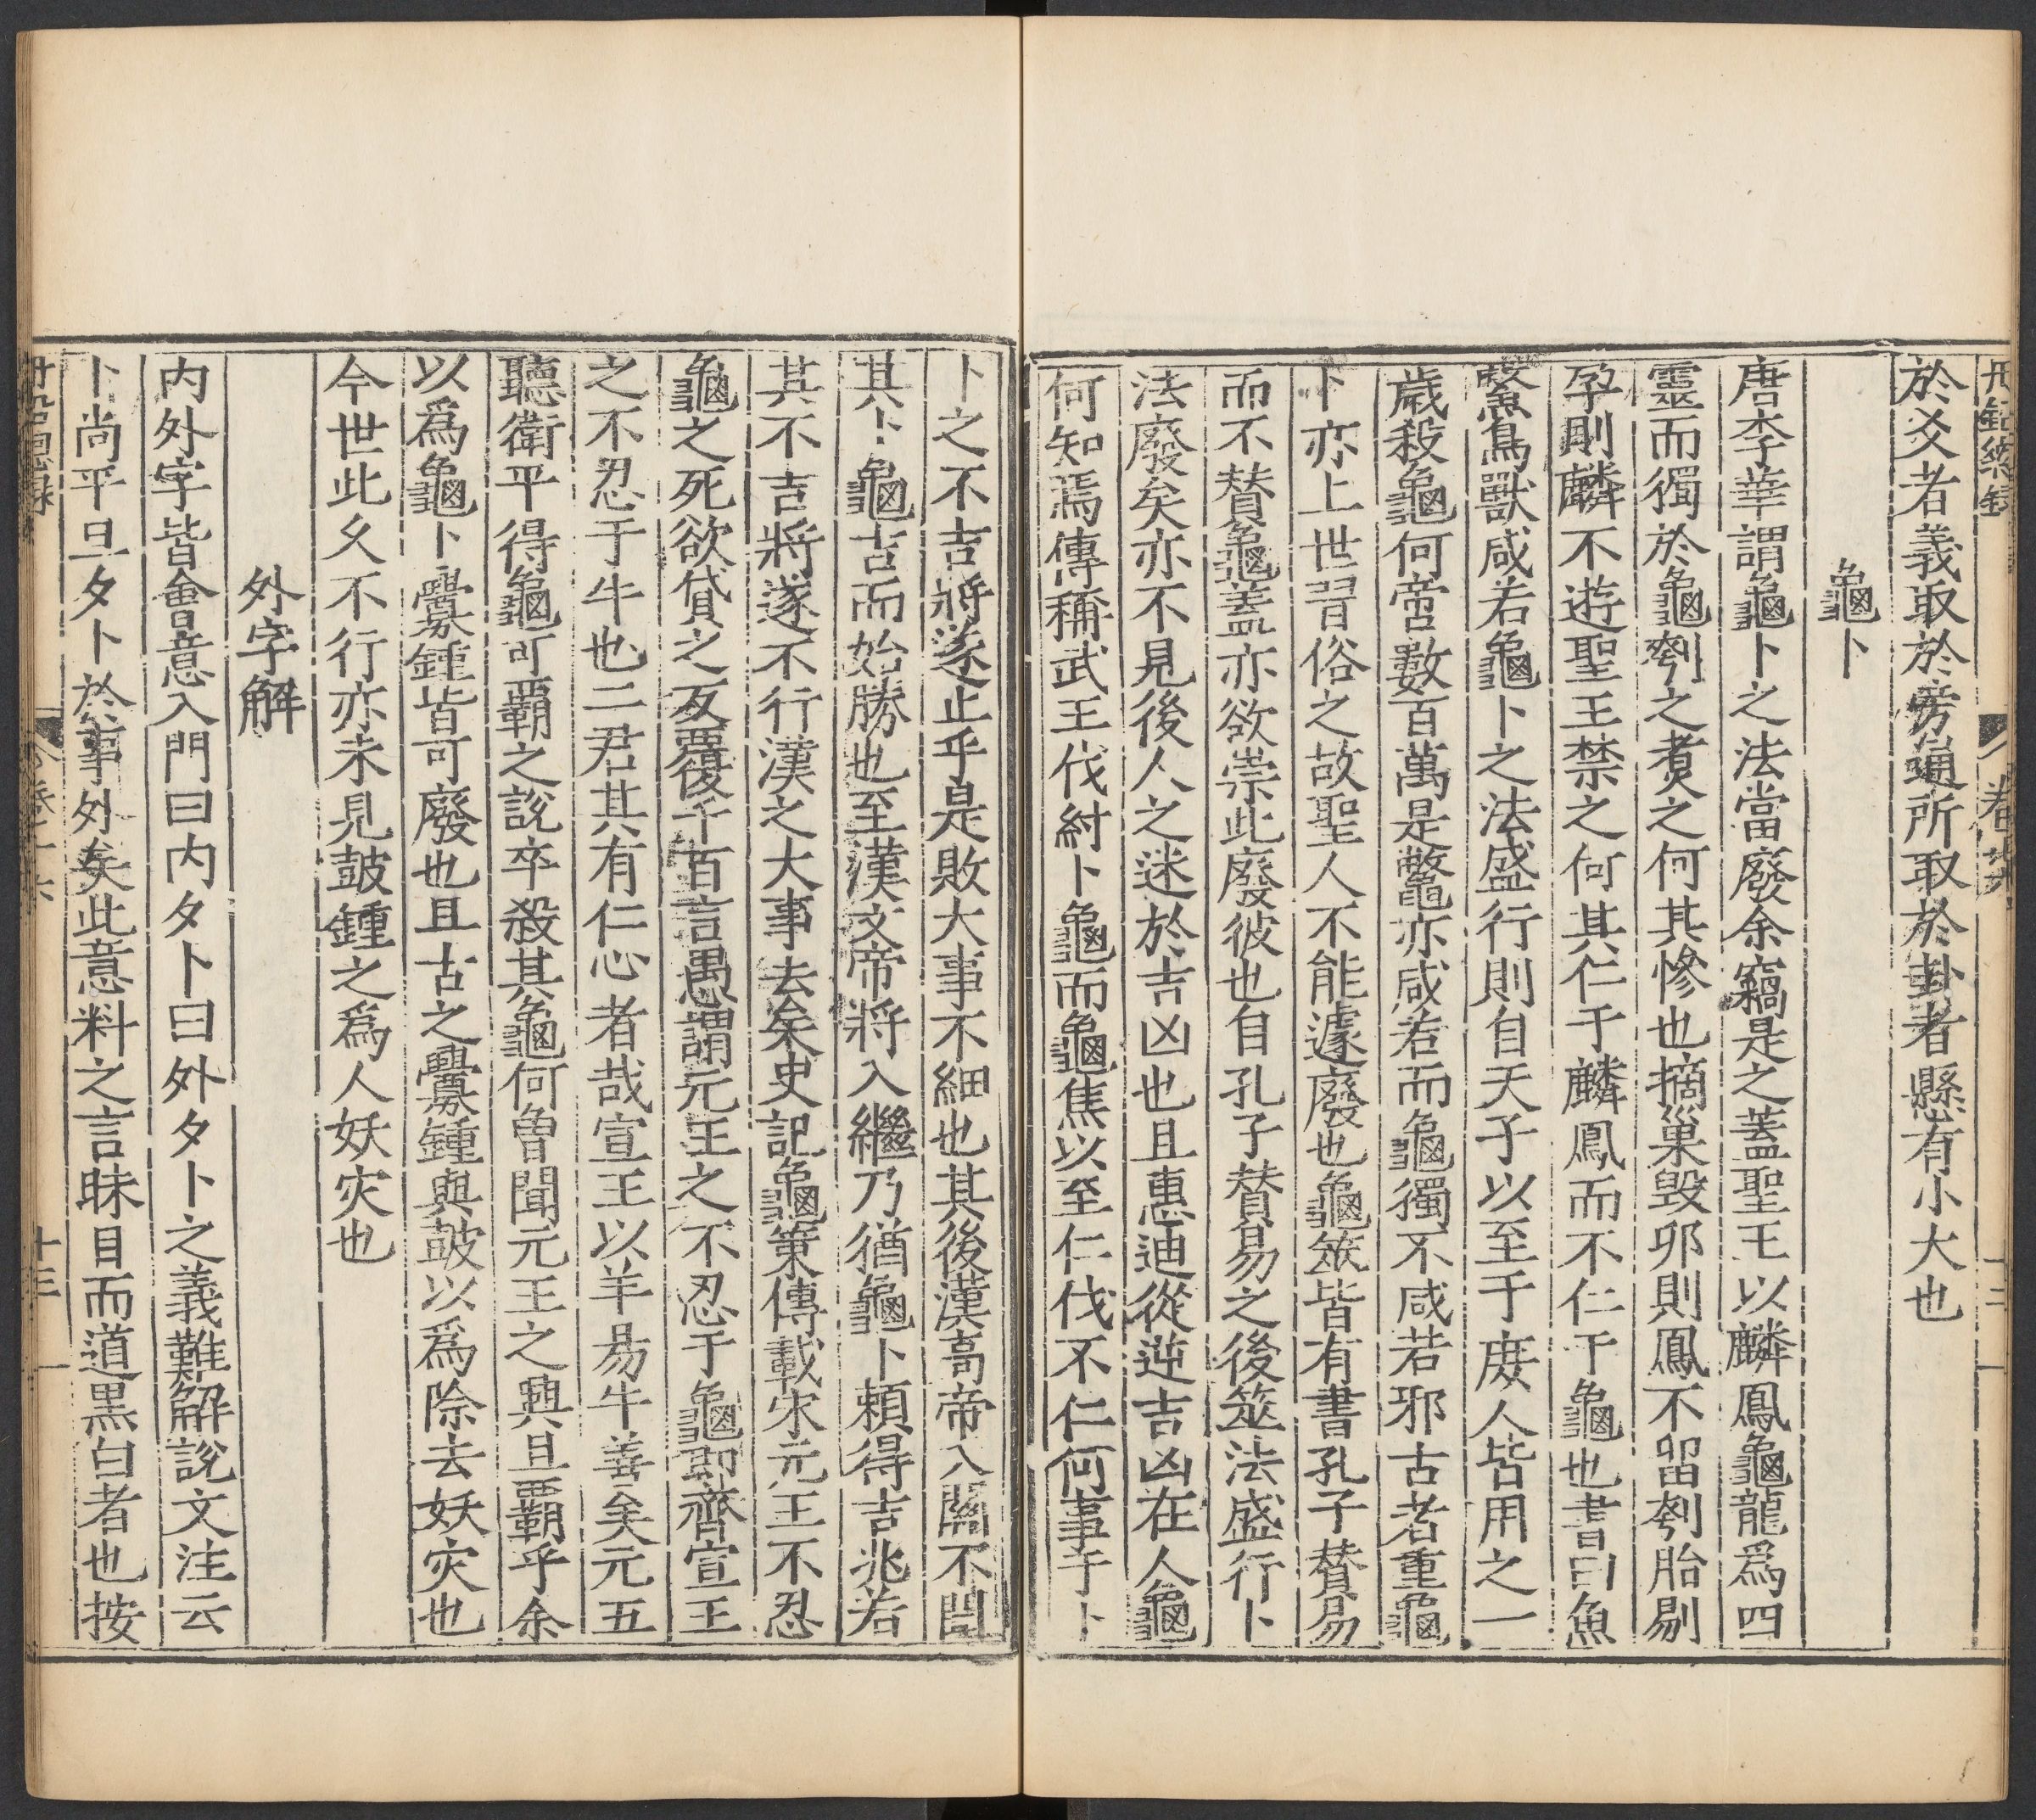 於爻者義取於旁通所取於卦者懸有小大也
龜卜
唐李華謂龜卜之法當廢余竊是之蓋聖王以麟鳳龜龍爲四
靈而獨於龜刳之煑之何其慘也摘巢毀卵則鳳不留刳胎剔
孕則麟不遊聖王禁之何其仁于麟鳳而不仁于龜也書曰魚
鱉鳥獸咸若龜卜之法盛行則自天子以至于庻人皆用之一
歲殺龜何啻數百萬是鼈亦咸若而龜獨不咸若邪古者重龜
卜亦上世習俗之故聖人不能遽廢也龜筮皆有書孔子賛易
而不賛龜蓋亦欲崇此廢彼也自孔子賛易之後筮法盛行卜
法廢矣亦不見後人之迷於吉凶也且惠迪從逆吉凶在人龜
何知焉傳稱武王伐紂卜龜而龜焦以至仁伐不仁何事于卜
卜之不吉將遂止乎是敗大事不細也其後漢高帝入關不聞
其卜龜古而始勝也至漢文帝將入繼乃猶龜卜頼得吉兆若
其不吉將遂不行漢之大事去矣史記龜策傳載宋元王不忍
龜之死欲貸之反覆後千百言愚謂元王之不忍于龜即齊宣王
之不忍于牛也二君其有仁心者哉宣王以羊易牛善矣元五
聽衛平得龜可霸之說卒殺其龜何曾聞元王之興且霸乎余
以爲龜卜釁鍾皆可廢也且古之釁鍾與鼓以爲除去妖灾也
今世此久不行亦未見鼓鍾之爲人妖灾也
外字解
内外字皆會意入門曰内夕卜曰外夕卜之義難解說文注云
卜尚平旦夕卜於事外矣此意料之言昧目而道黒白者也按
卷十六
十三